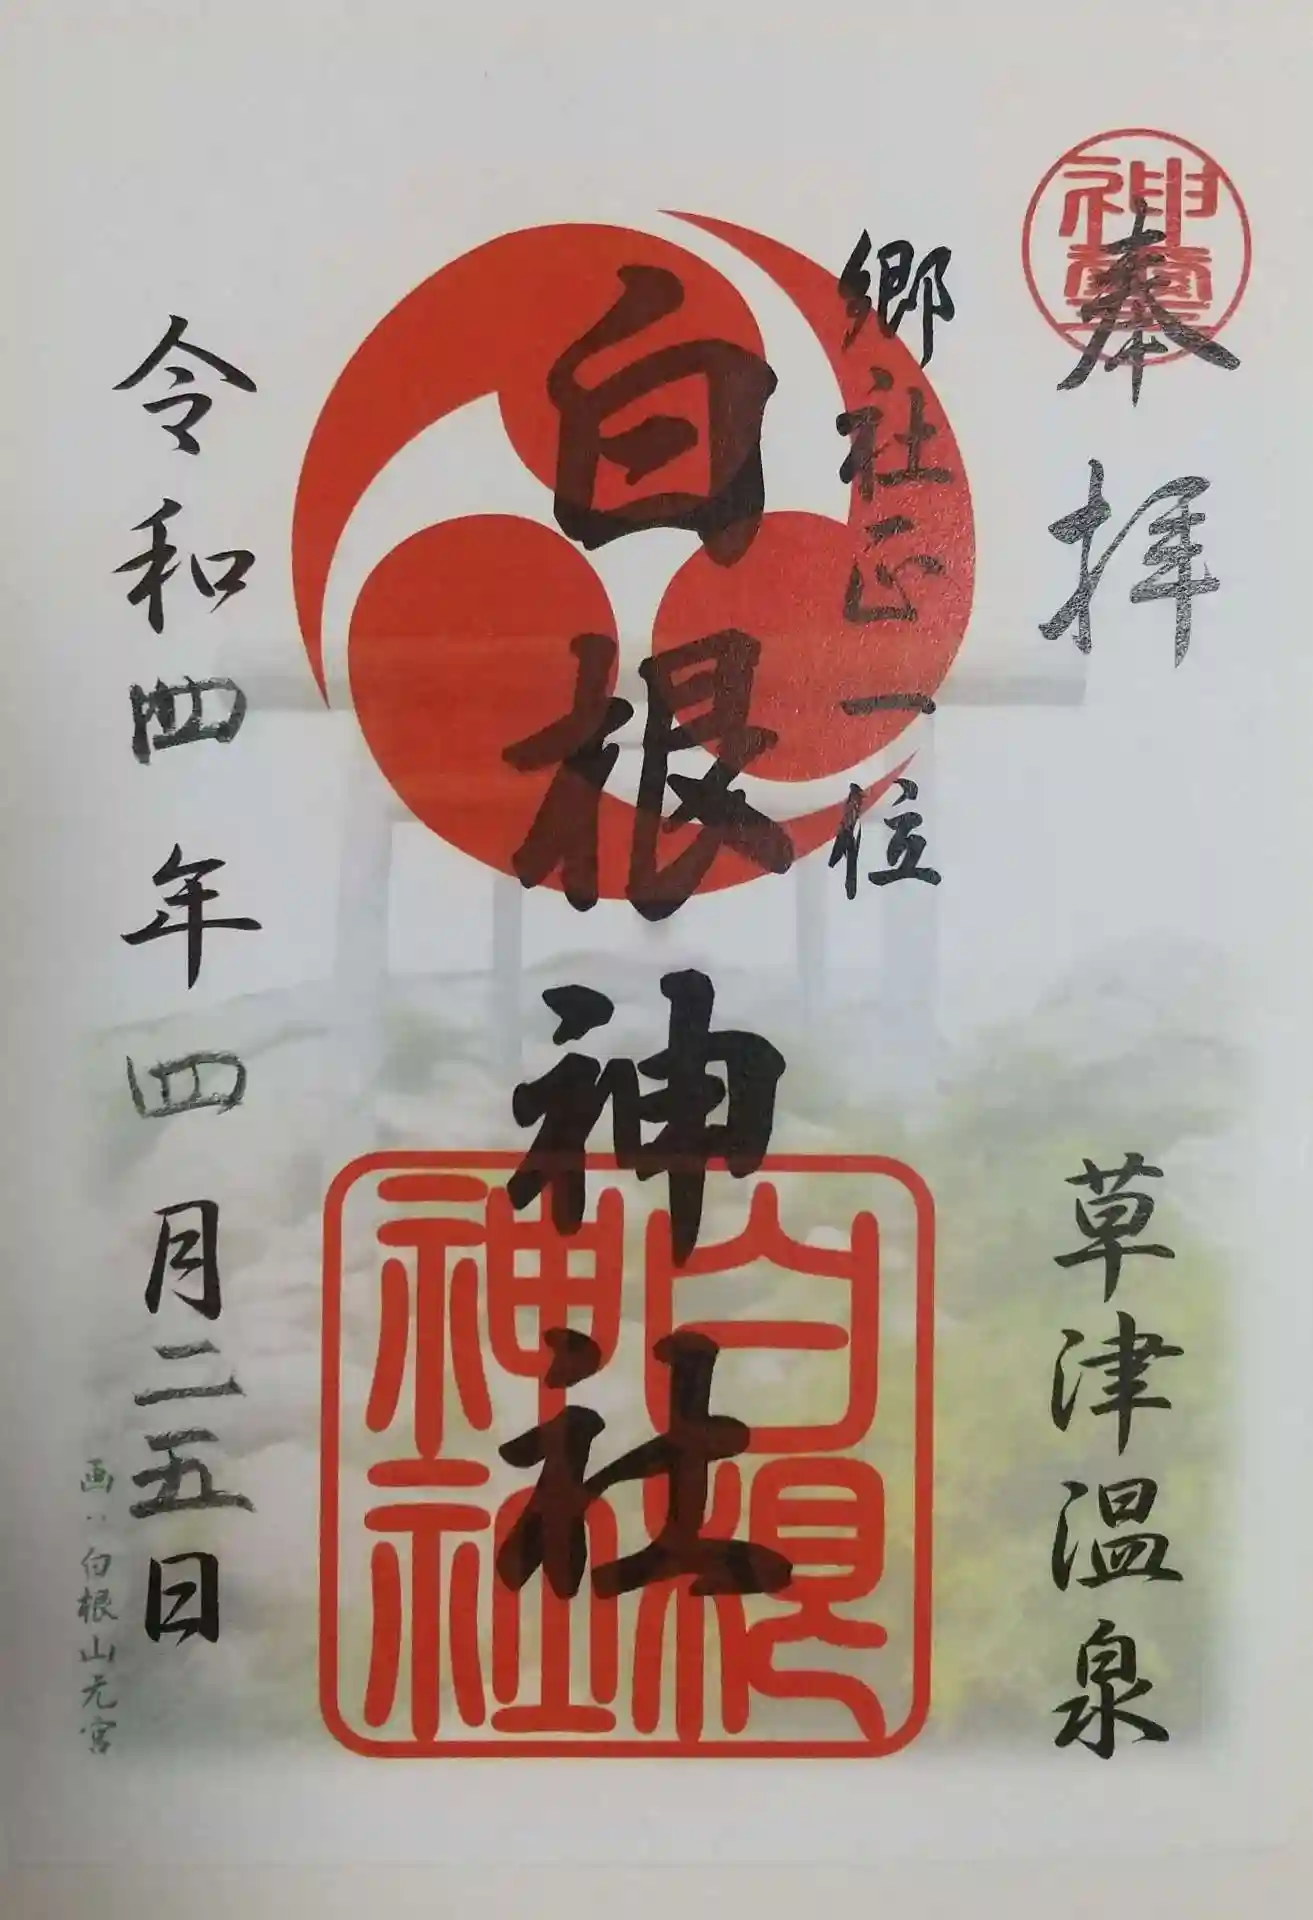 奉拝
草津温泉
郷社正一位
白根神社
白根神社
令和四年四月二五日
画：白根山元宮